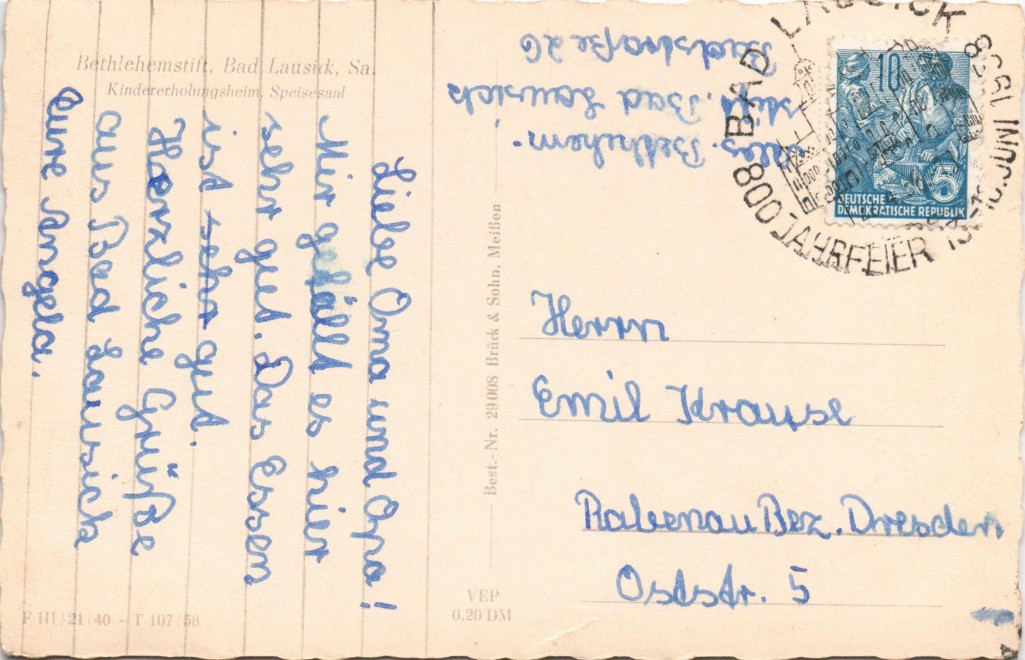 Bethlehemstift, Bad Lausick, Sa.
Kindererholungsheim, Speisesaal
Liebe Oma und Opa!
Mir gefällt es hier
sehr gut. Das Essen
ist sehr gut.
Herzliche Grüße
aus Bad Lausick
Eure Angela.
Bethlehem-
stift. Bad Lausick
Badstraße 26
BAD LAUSICK
800 JAHRFEIER
10
5
DEUTSCHE
DEMOKRATISCHE REPUBLIK
Herrn
Emil Krause
Rabenau Bez. Dresden
Oststr. 5
Best.-Nr. 29 008 Brück & Sohn, Meißen
VEP
0,20 DM
F III/21/40 - T 107/58